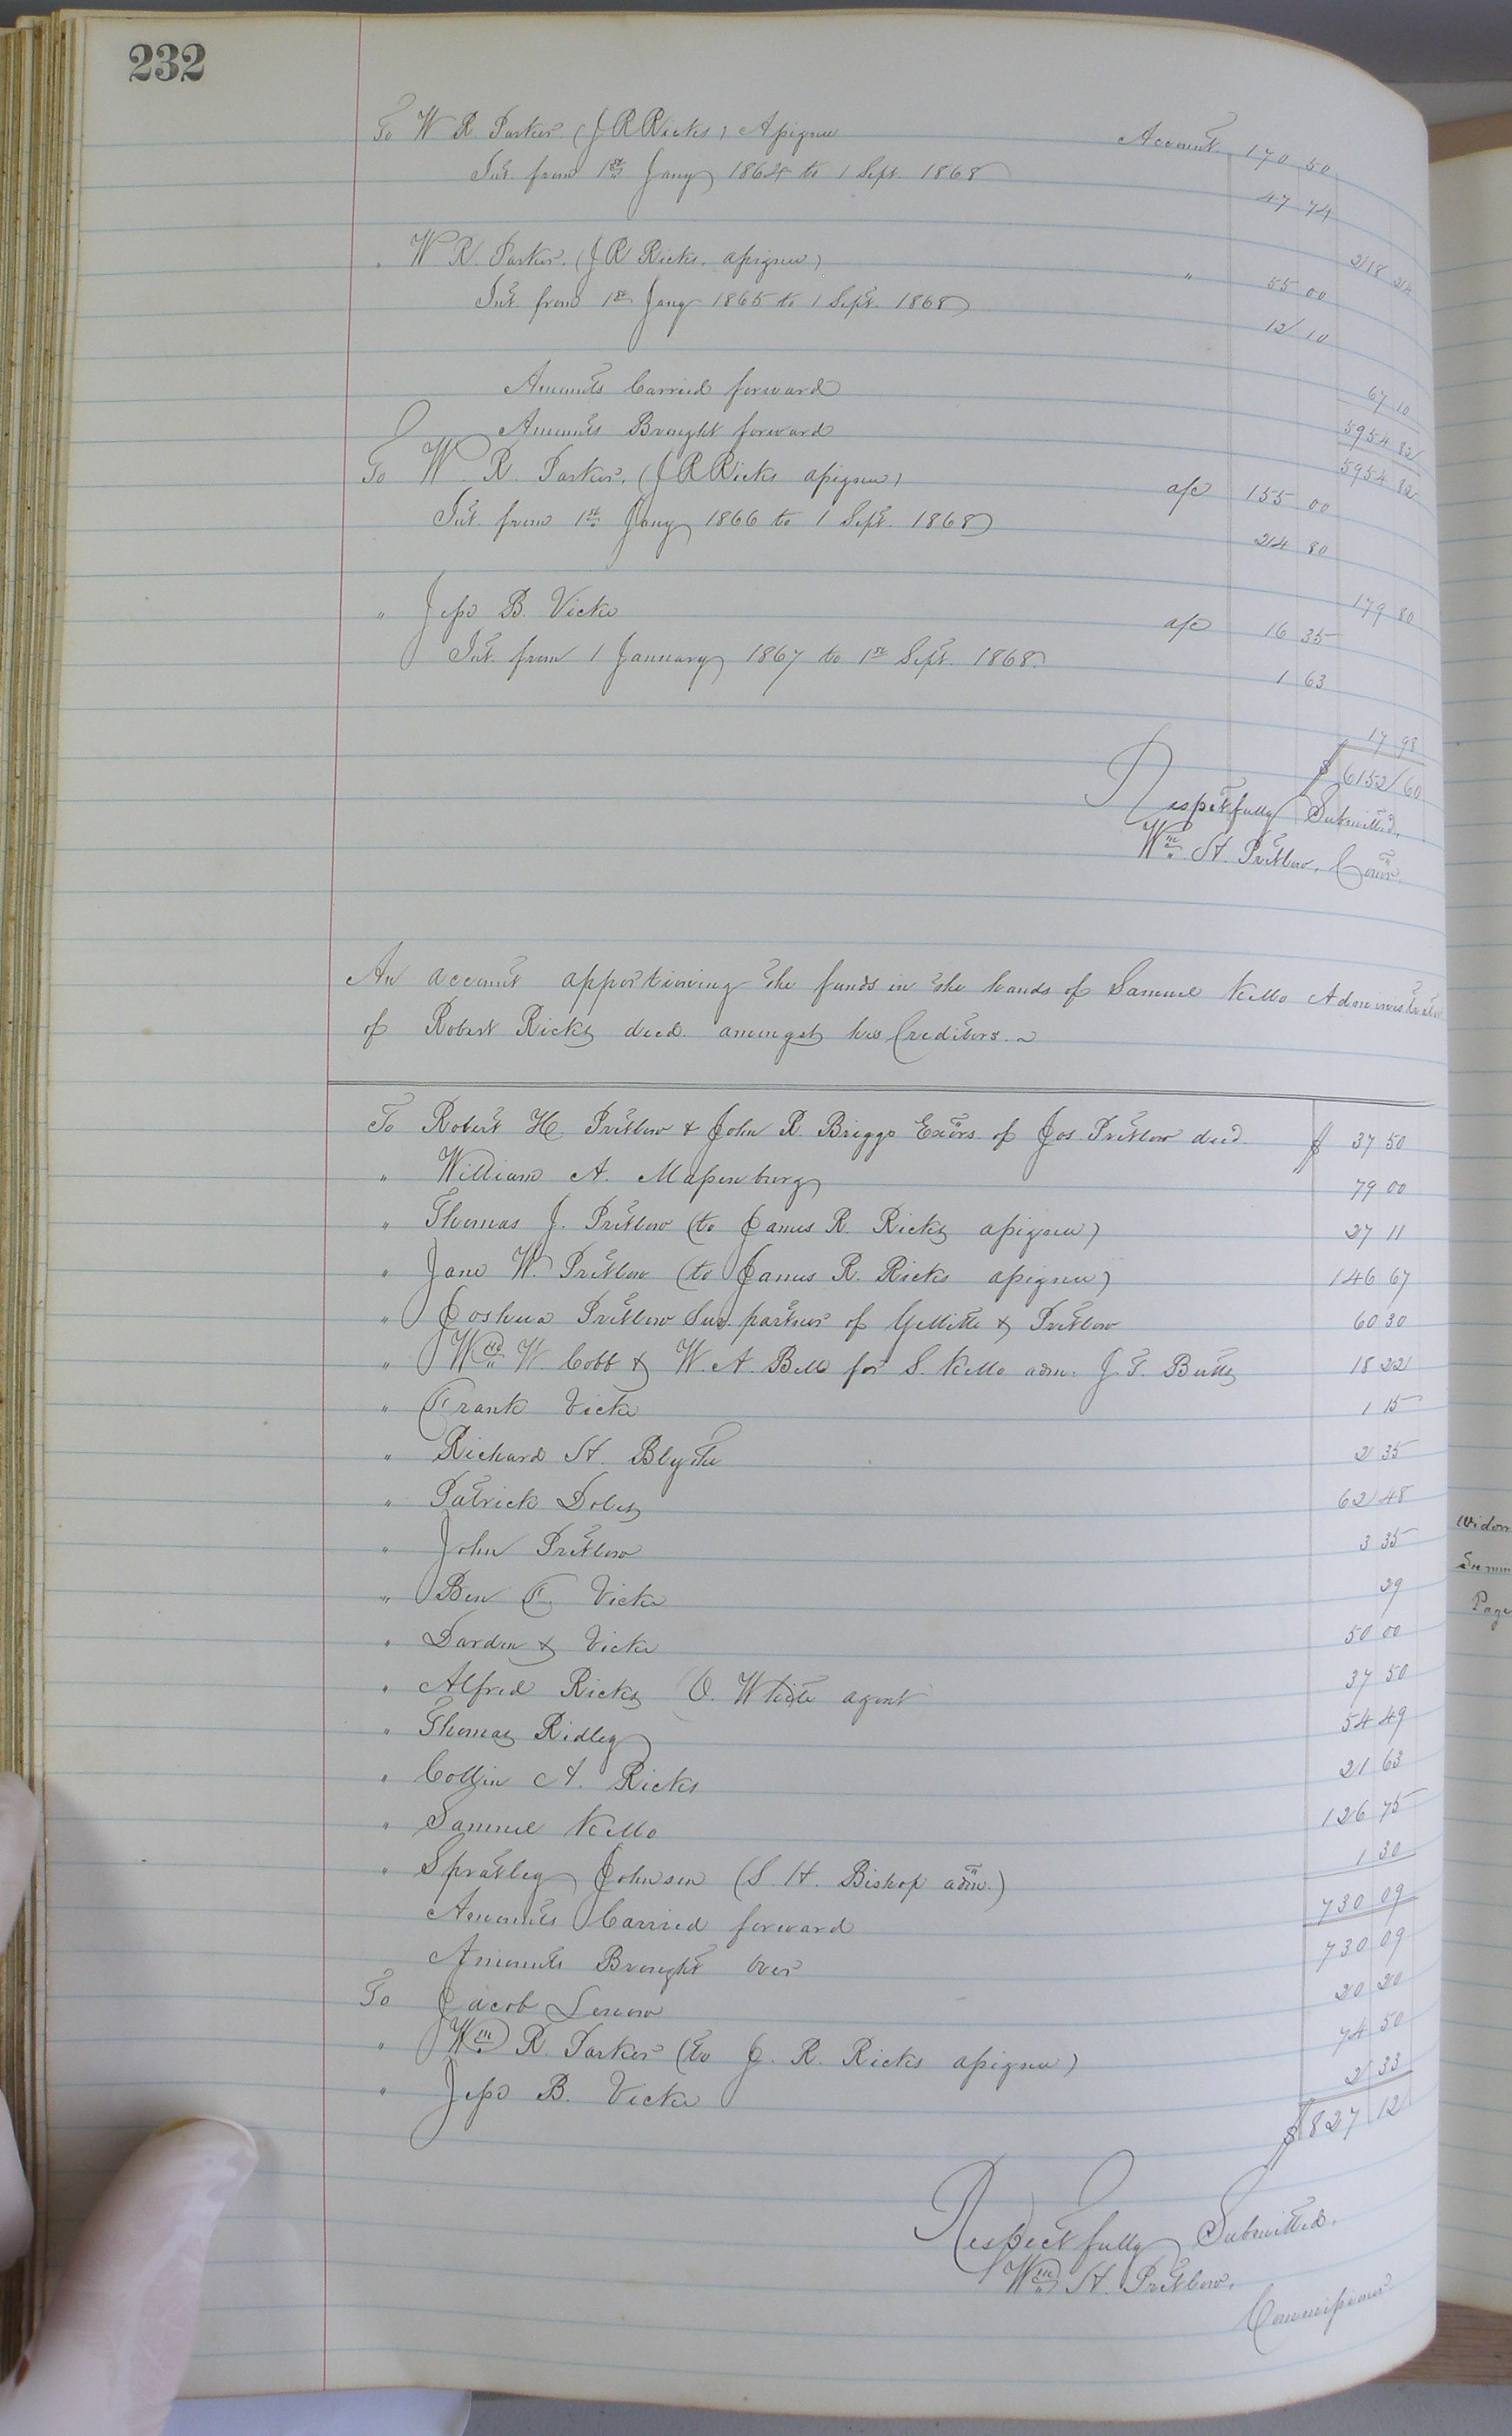 232
To W R Parker (J R Ricks) Assignee Account 170 50
Int. from 1st Jany 1864 to 1 Sept. 1868 47 74
218 24
" W R. Parker. (J R Ricks. assignee) " 55 00
Int. from 1st Jany 1865 to 1 Sept. 1868 12 10
67 10
Amounts Carried forward 5954 82
Amounts Brought forward 5954 82
To W. R. Parker. (J R Ricks assignee) a/c 155 00
Int. from 1st Jany 1866 to 1 Sept. 1868 24 80
179 80
" Jesse B. Vick a/c 16 35
Int. from 1 January 1867 to 1st Sept. 1868. 1 63
17 98
$ 6152 60
Respectfully Submitted.
Wm. H. Pretlow, Comr.
An account apportioning the funds in the hands of Samuel Kello Administrator
of Robert Ricks decd. amongst his Creditors.
To Robert H. Pretlow & John R. Briggs Exors. of Jos Pretlow decd $ 37 50
" William A. Massenburg 79 00
" Thomas J. Pretlow (to James R. Ricks assignee) 27 11
" Jane W. Pretlow (to James R. Ricks assignee) 146 67
" Joshua Pretlow Sur. partner of Gillette & Pretlow 60 30
" Wm W. Cobb & W. A. Bell for S. Kello adm. J. T. Butts 18 22
" Frank Vick 1 15
" Richard H. Blythe 2 35
" Patrick Doles 62 48
" John Pretlow 3 35
" Ben F. Vick 29
" Darden & Vick 50 00
" Alfred Ricks O. White agent 37 50
" Thomas Ridley 54 49
" Collin A. Ricks 21 63
" Samuel Kello 126 75
" Spratley Johnson (S. H. Bishop adm.) 1 30
Amounts Carried forward 730 09
Amounts Brought over 730 09
To Jacob Lenow 20 20
" Wm R. Parker (to J. R. Ricks assignee) 74 50
" Jesse B. Vick 2 33
$ 827 12
Respectfully Submitted.
Wm H. Pretlow.
Commissioner
Page